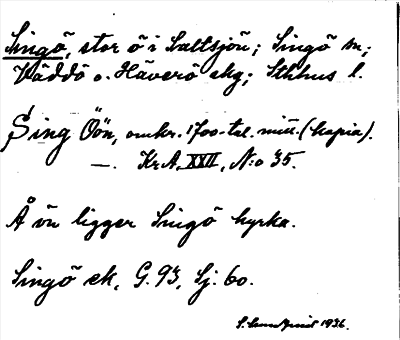 Singö, stor ö i Saltsjön; Singö sn;
Väddö o. Häverö skg; Sthlms l.
Sing Öön, omkr. 1700-tal. mitt. (kopia).
—. KrA, XXII, N:o 35.
Å ön ligger Singö kyrka.
Singö ek, G. 93, Sj. 60.
1936.